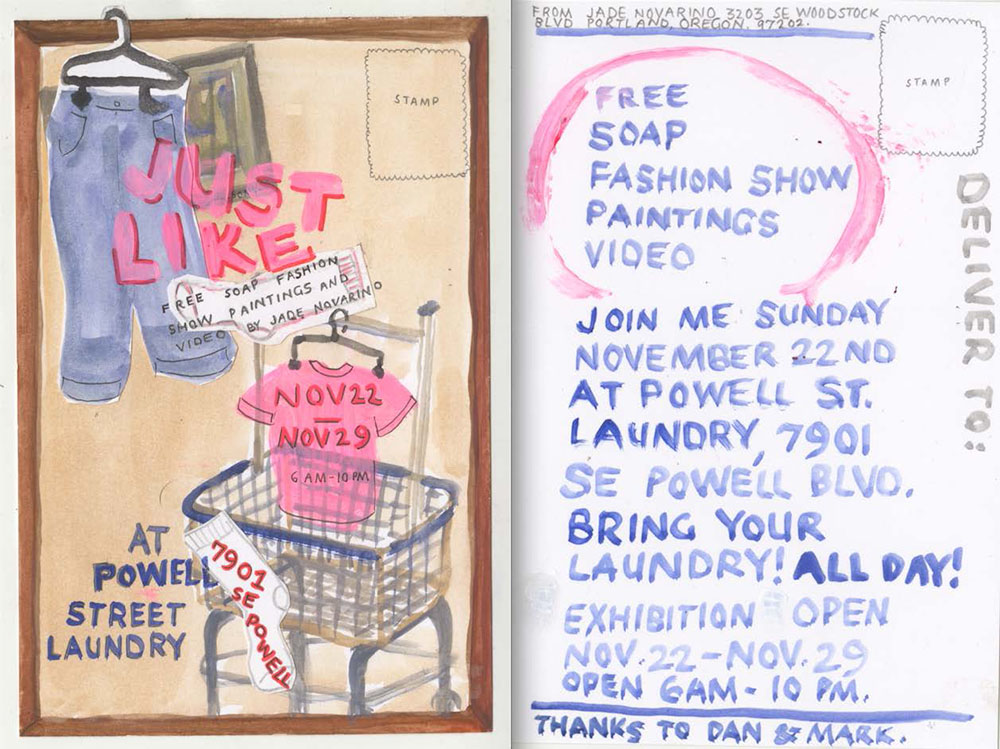 STAMP
JUST
LIKE
FREE SOAP FASHION
SHOW PAINTINGS AND
VIDEO BY JADE NOVARINO
NOV22
—
NOV29
6 AM-10 PM
AT
POWELL
STREET
LAUNDRY
7901
SE
POWELL
FROM JADE NOVARINO 3203 SE WOODSTOCK
BLVD PORTLAND, OREGON. 97202.
STAMP
FREE
SOAP
FASHION SHOW
PAINTINGS
VIDEO
DELIVER TO:
JOIN ME SUNDAY
NOVEMBER 22ND
AT POWELL ST.
LAUNDRY, 7901
SE POWELL BLVD.
BRING YOUR
LAUNDRY! ALL DAY!
EXHIBITION OPEN
NOV. 22-NOV. 29
OPEN 6AM - 10 PM.
THANKS TO DAN & MARK.